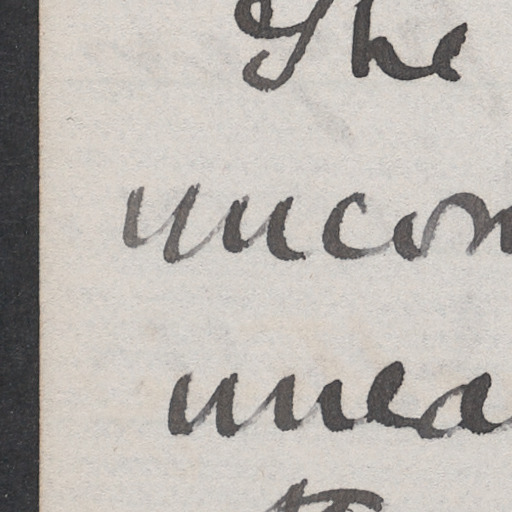 The
uncon
unea